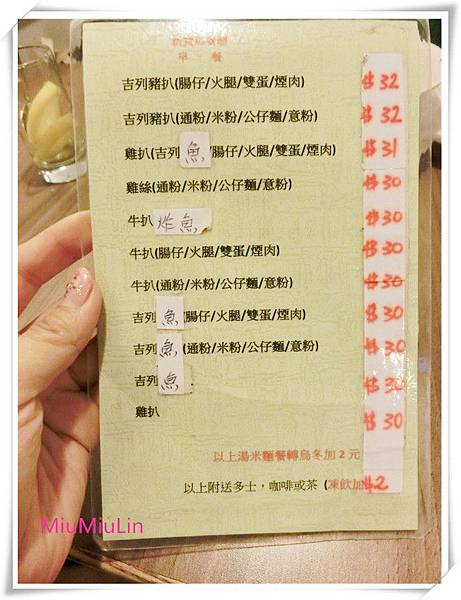 早 餐
吉列豬扒(腸仔/火腿/雙蛋/煙肉) $32
吉列豬扒(通粉/米粉/公仔麵/意粉) $32
雞扒(吉列魚/腸仔/火腿/雙蛋/煙肉) $31
雞絲(通粉/米粉/公仔麵/意粉) $30
牛扒炸魚 $30
牛扒(腸仔/火腿/雙蛋/煙肉) $30
牛扒(通粉/米粉/公仔麵/意粉) $30
吉列魚(腸仔/火腿/雙蛋/煙肉) $30
吉列魚(通粉/米粉/公仔麵/意粉) $30
吉列魚 $30
雞扒 $30
以上湯米麵餐轉烏冬加 2 元
以上附送多士，咖啡或茶 (凍飲加$2
MiuMiuLin